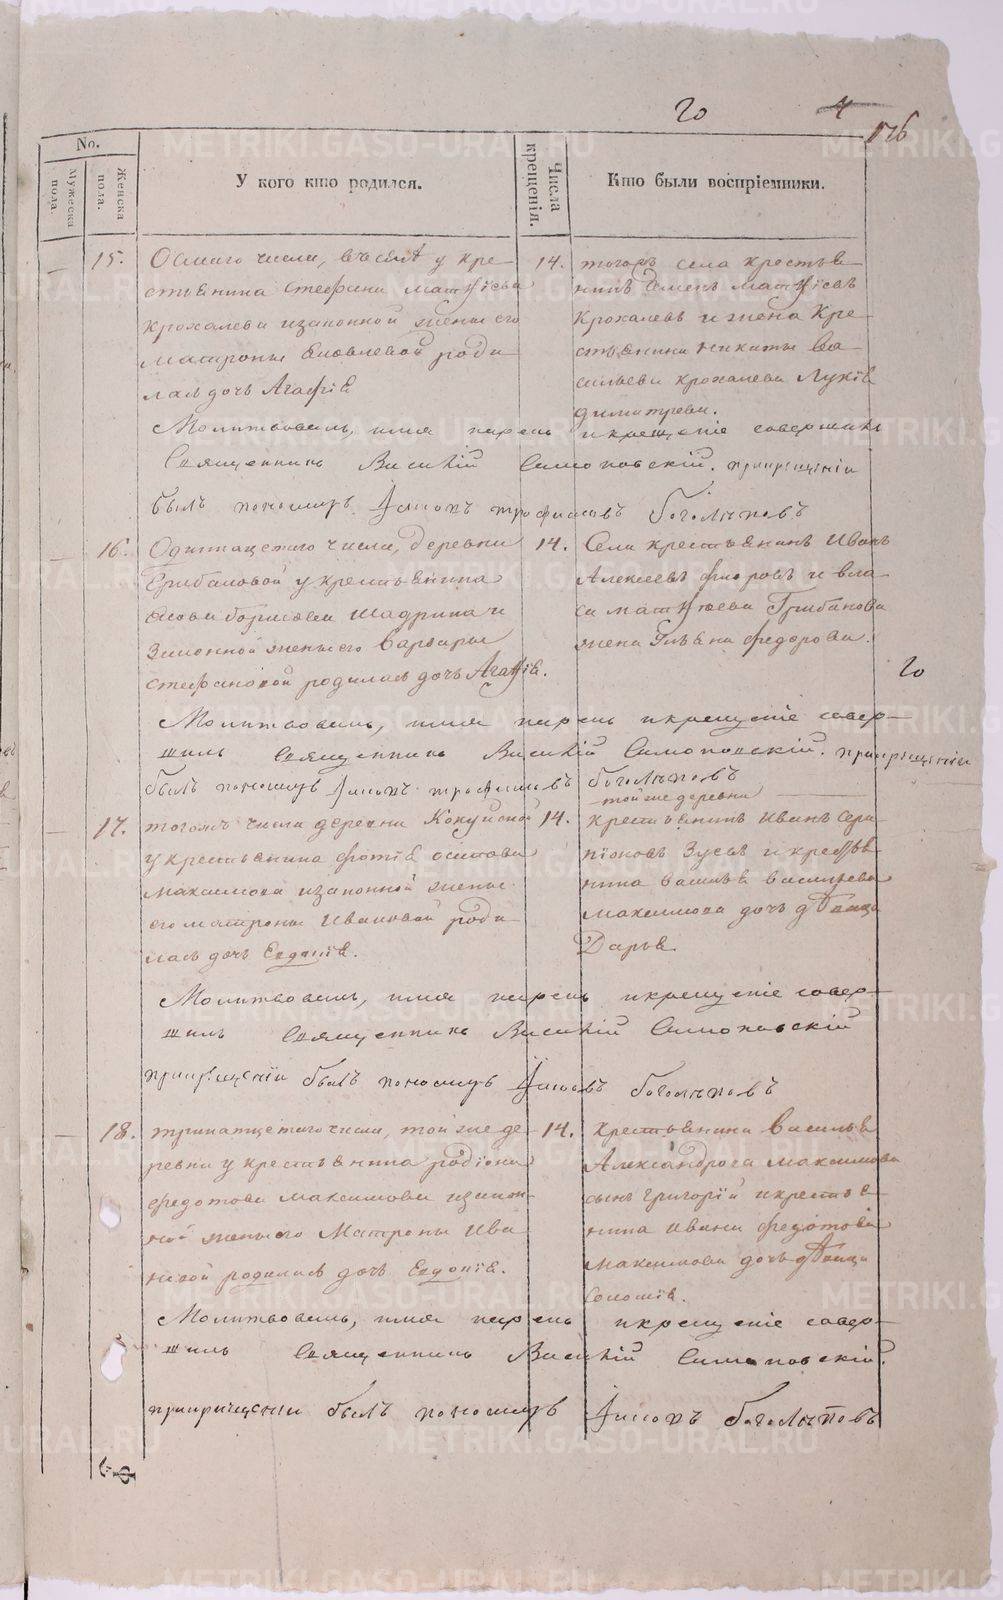 20 4
176
No.
Мужеска пола.
Женска пола.
У кого кто родился.
Числа крещенія.
Кто были воспріемники.
15. Осмаго числа, въ селѣ у кре-
стьянина Стефана Матѳіева
Крохалева изаконной жены его
Матроны Яковлевой роди
лась дочь Агафія
14. тогожъ села крестья-
нинъ Матѳіевъ
Крохалевъ и жена Кре-
стьянина Никиты Ва-
сильева Крохалева Лукія
Димитрева.
Молитвовалъ, имя нарекъ икрещеніе совершилъ
Священникъ Василій Симоновскій. прикрещеніи
былъ пономарь Іаковъ трофимовъ боголѣповъ
16. Одиннацетаго числа, деревни
Грибановой у крестьянина
Іакова борисова Шадрина и
Законной жены его Варвары
Стефановой родилась дочь Агафія.
14. Села крестьянинъ Иванъ
Алексеевъ и вла-
са матѳіева Грибанова
жена Ульяна федорова.
20
Молитвовалъ, имя нарекъ икрещеніе совер-
шилъ Священникъ Василій Симоновскій. прикрещеніи
былъ пономарь Іаковъ трофимовъ боголѣповъ
17. тогожъ числа деревни Кокуйской
у крестьянина фотія осипова
Максимова изаконной жены
его матроны Ивановой роди
лась дочь Евдокія.
тойже деревни
14. крестьянинъ Иванъ
Зуевъ и крестья
нина василья васильева
Максимова дочь дѣвица
Дарья
Молитвовалъ, имя нарекъ икрещеніе совер-
шилъ Священникъ Василій Симоновскій
прикрещеніи былъ пономарь Іаковъ боголѣповъ
18. тринатцетаго числа, той же де
ревни у крестьянина родіона
федотова максимова изакон-
ной жены его Матроны Ива
новой родилась дочь Евдокія.
14. крестьянина Василья
Александрова максимова
сынъ григорій и крестья-
нина ивана федотова
максимова дочь дѣвица
Соломія.
Молитвовалъ, имя нарекъ икрещеніе совер-
шилъ Священникъ Василій Симоновскій.
прикрещении былъ пономарь Іаковъ боголѣповъ
METRIKI.GASO-URAL.RU